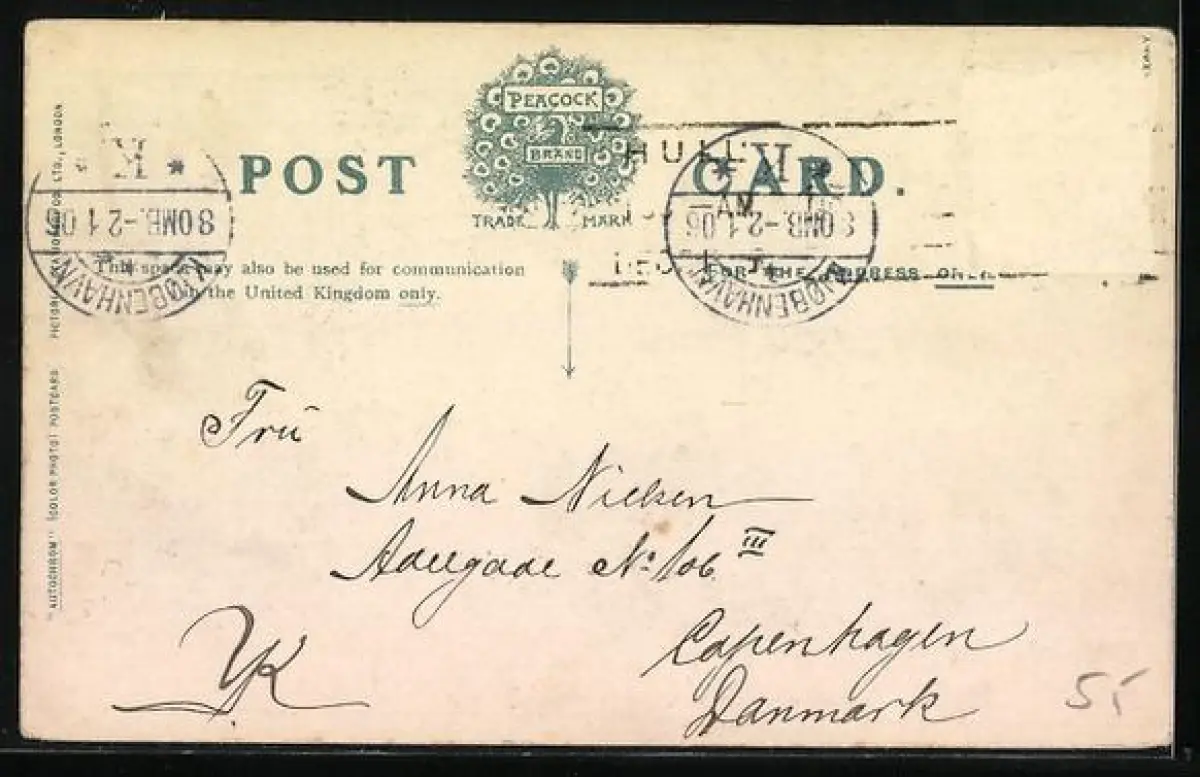 PEACOCK
BRAND
TRADE MARK
POST CARD.
HULL
AM
KJØBENHAVN
8 OMB. -2 1 06
K
KJØBENHAVN
8 OMB. -2 1 06
K
This space may also be used for communication
in the United Kingdom only.
FOR THE ADDRESS ONLY.
"AUTOCHROM" (COLOR PHOTO) POSTCARD
CO. LTD., LONDON
Fru
Anna Nielsen
Adelgade No 106 III
Copenhagen
Danmark
55